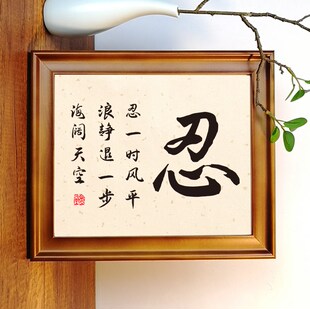 忍
忍一时风平
浪静退一步
海阔天空